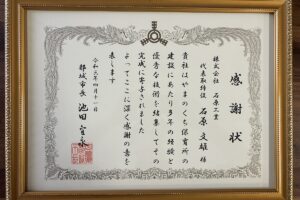 感謝状
株式会社 石原工業
代表取締役 石原文雄 様
貴社はやまのくち保育所の
建設にあたり多年の経験と
優秀な技術を結集してその
完成に寄与されました
よってここに深く感謝の意を
表します
令和元年四月十一日
都城市長 池田宜永